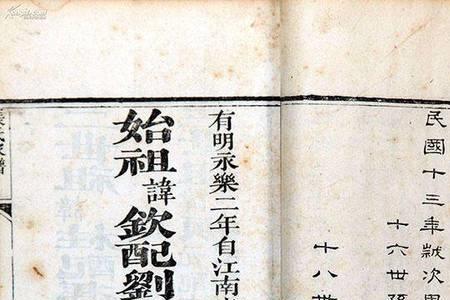 民國十三年歲次
十六世孫
十八世
有明永樂二年自江南
始祖諱欽配劉